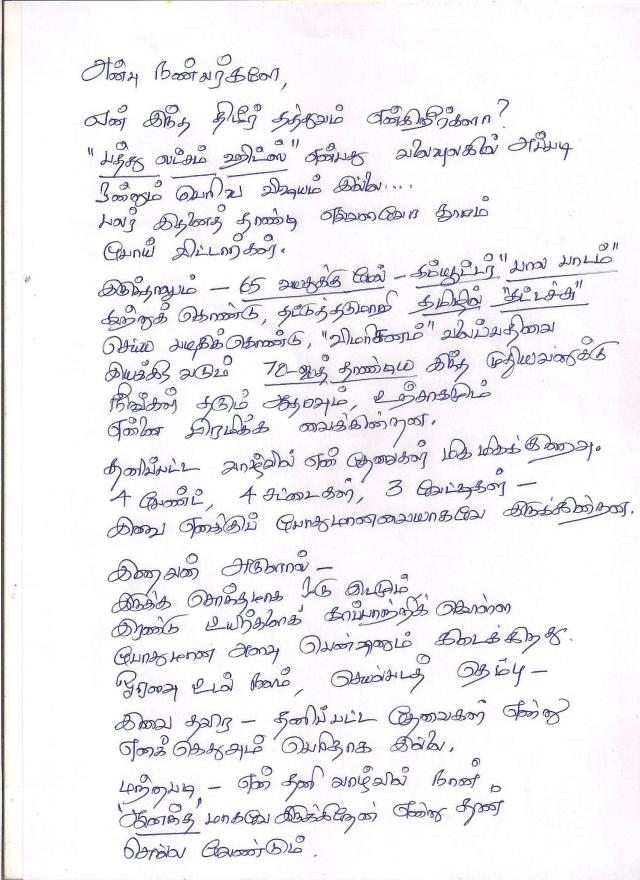 அன்பு நண்பர்களே,
ஏன் இந்த திடீர் தத்துவம் என்கிறீர்களா?
"பத்து லட்சம் ஹிட்ஸ்" என்பது வலையுலகில் அப்படி
ஒன்றும் பெரிய விஷயம் இல்லை....
பலர் இதனைத் தாண்டி எவ்வளவோ தூரம்
போய் விட்டார்கள்.
இருந்தாலும் - 65 வயதுக்கு மேல் - கம்ப்யூட்டர் "பால பாடம்"
கற்றுக் கொண்டு, தட்டுத்தடுமாறி தமிழில் "தட்டச்சு"
செய்ய பழகிக்கொண்டு, "விமரிசனம்" வலைப்பதிவை
இயக்கி வரும் 72-ஐத் தாண்டிய இந்த முதியவனுக்கு
நீங்கள் தரும் ஆதரவும், உற்சாகமும்
என்னை பிரமிக்க வைக்கின்றன.
தனிப்பட்ட வாழ்வில் என் தேவைகள் மிக மிகக் குறைவு.
4 பேண்ட், 4 சட்டைகள், 3 வேட்டிகள் -
இவை எனக்குப் போதுமானவையாகவே இருக்கின்றன.
இறைவன் அருளால் -
இருக்க சொந்தமாக ஒரு இடமும்
இரண்டு உயிர்களைக் காப்பாற்றிக் கொள்ள
போதுமான அளவு பென்ஷனும் கிடைக்கிறது.
ஓரளவு உடல் நலம், செயல்படத் தெம்பு -
இவை தவிர - தனிப்பட்ட தேவைகள் என்று
எனக்கெதுவும் பெரிதாக இல்லை.
மற்றபடி - என் தனி வாழ்வில் நான்
'ஆனந்த' மாகவே இருக்கிறேன் என்று தான்
சொல்ல வேண்டும்.